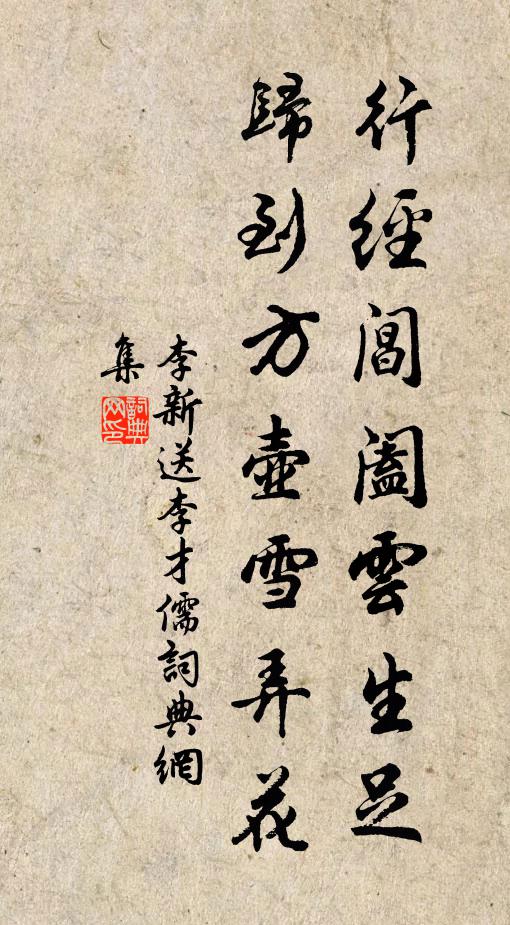 行經閶闔雲生足
歸到方壺雪弄花
李新送李才儒詞典網
集
詞典
网印